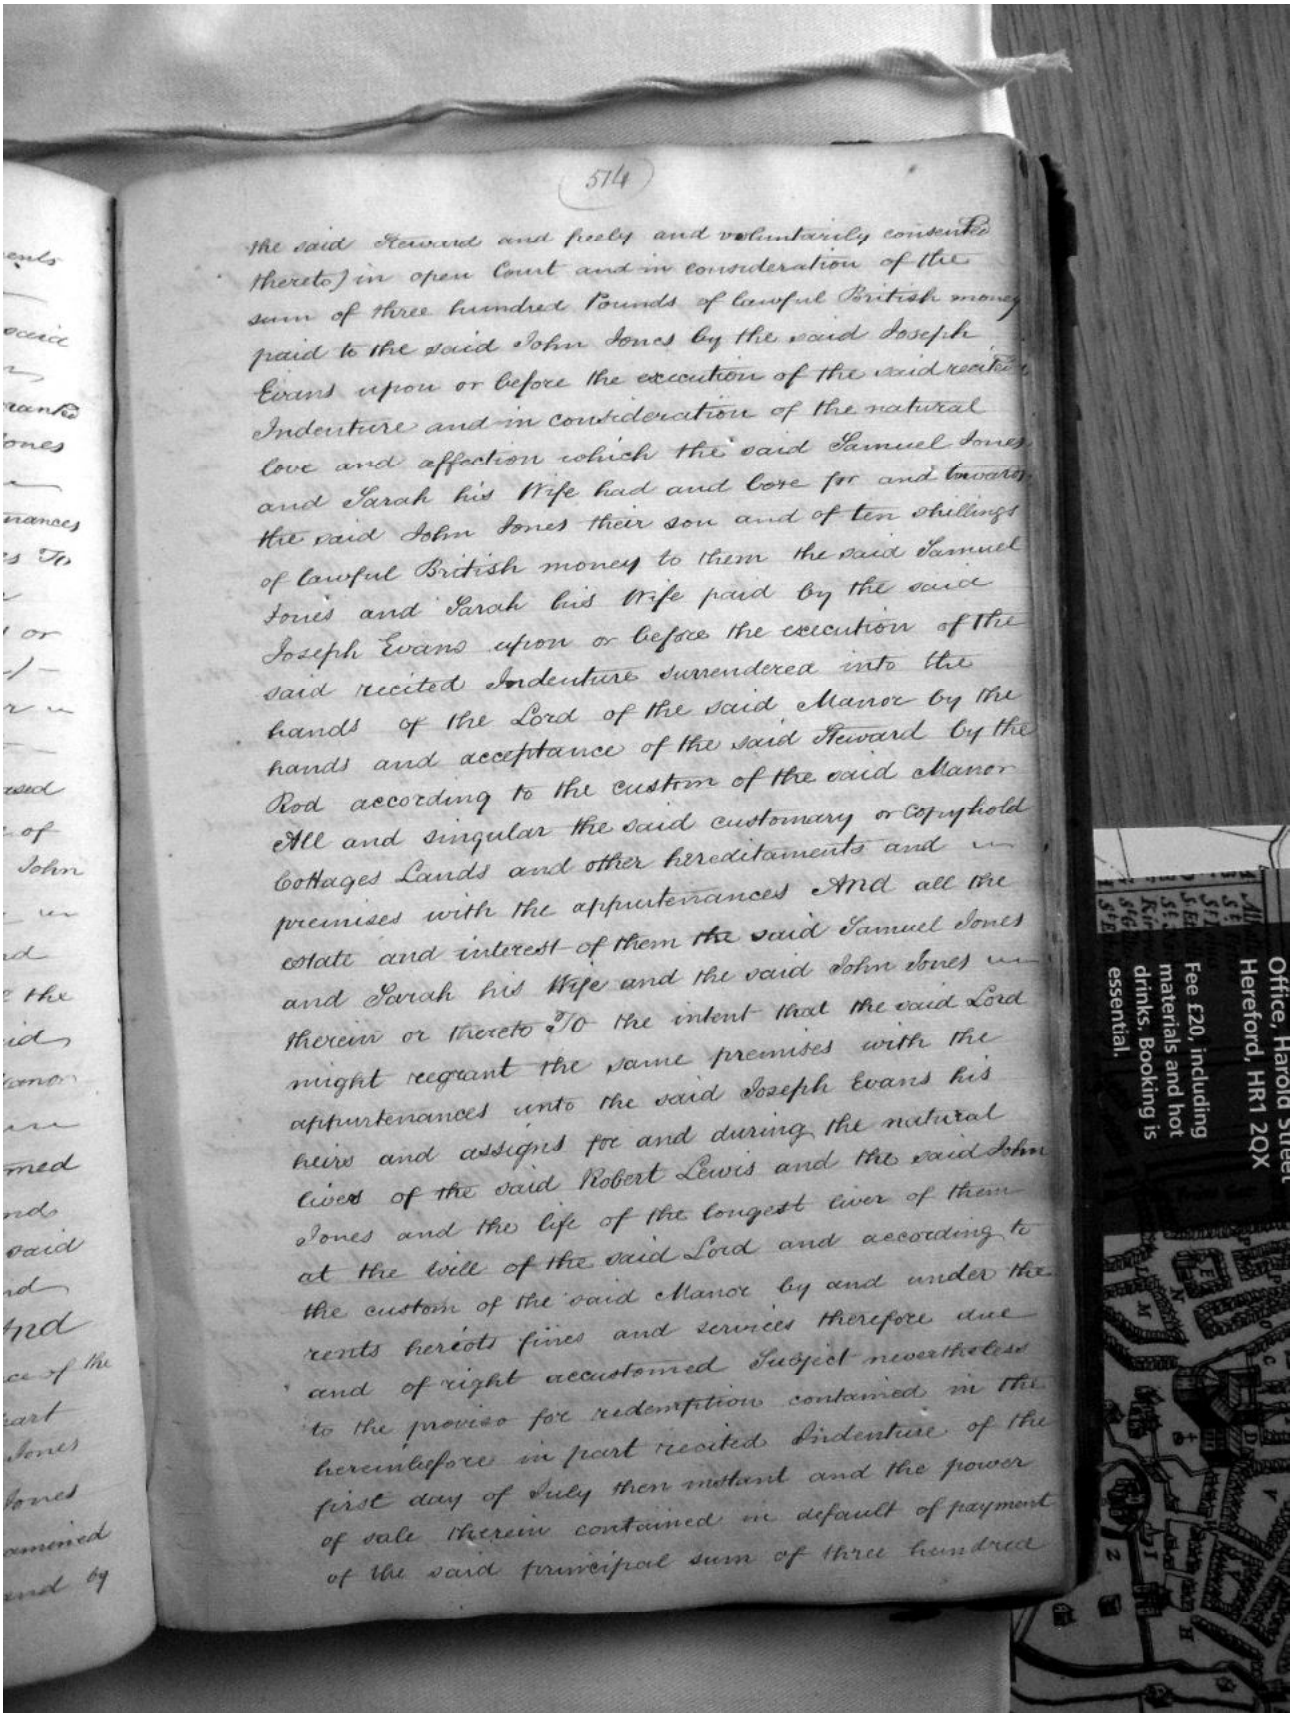 514
the said Steward and freely and voluntarily consented
thereto) in open Court and in consideration of the
sum of three hundred Pounds of lawful British money
paid to the said John Jones by the said Joseph
Evans upon or before the execution of the said recited
Indenture and in consideration of the natural
love and affection which the said Samuel Jones
and Sarah his Wife had and bore for and towards
the said John Jones their son and of ten shillings
of lawful British money to them the said Samuel
Jones and Sarah his Wife paid by the said
Joseph Evans upon or before the execution of the
said recited Indenture surrendered into the
hands of the Lord of the said Manor by the
hands and acceptance of the said Steward by the
Rod according to the custom of the said Manor
All and singular the said customary or Copyhold
Cottages Lands and other hereditaments and
premises with the appurtenances And all the
estate and interest of them the said Samuel Jones
and Sarah his Wife and the said John Jones
therein or thereto To the intent that the said Lord
might regrant the same premises with the
appurtenances unto the said Joseph Evans his
heirs and assigns for and during the natural
lives of the said Robert Lewis and the said John
Jones and the life of the longest liver of them
at the Will of the said Lord and according to
the custom of the said Manor by and under the
rents heriots fines and services therefore due
and of right accustomed Subject nevertheless
to the proviso for redemption contained in the
hereinbefore in part recited Indenture of the
first day of July then instant and the power
of sale therein contained in default of payment
of the said principal sum of three hundred
ents
said
Jones
or
of
John
the
said
And
of the
part
Jones
Jones
and by
Office, Harold Street
Hereford, HR1 2QX
Fee £20, including
materials and hot
drinks. Booking is
essential.